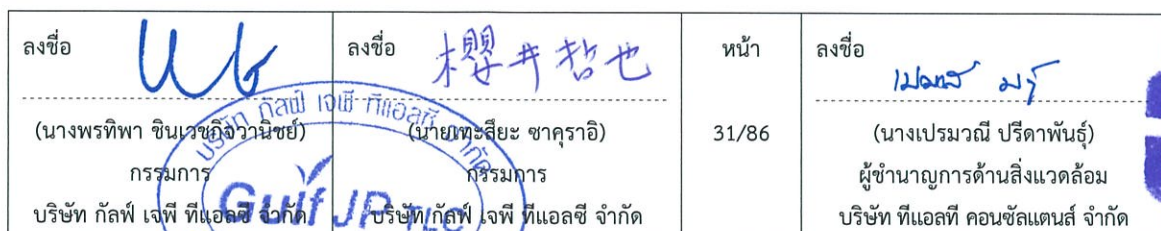 ลงชื่อ
櫻井哲也
ลงชื่อ
หน้า
ลงชื่อ
(นางพรทิพา ชินเวชกิจวานิชย์)
กรรมการ
บริษัท กัลฟ์ เจพี ทีแอลซี จำกัด
(นายเทะสึยะ ซาคุราอิ)
กรรมการ
บริษัท กัลฟ์ เจพี ทีแอลซี จำกัด
31/86
(นางเปรมวณี ปรีดาพันธุ์)
ผู้ชำนาญการด้านสิ่งแวดล้อม
บริษัท ทีแอลที คอนซัลแตนส์ จำกัด
บริษัท กัลฟ์ เจพี ทีแอลซี จำกัด
Gulf JP TLC